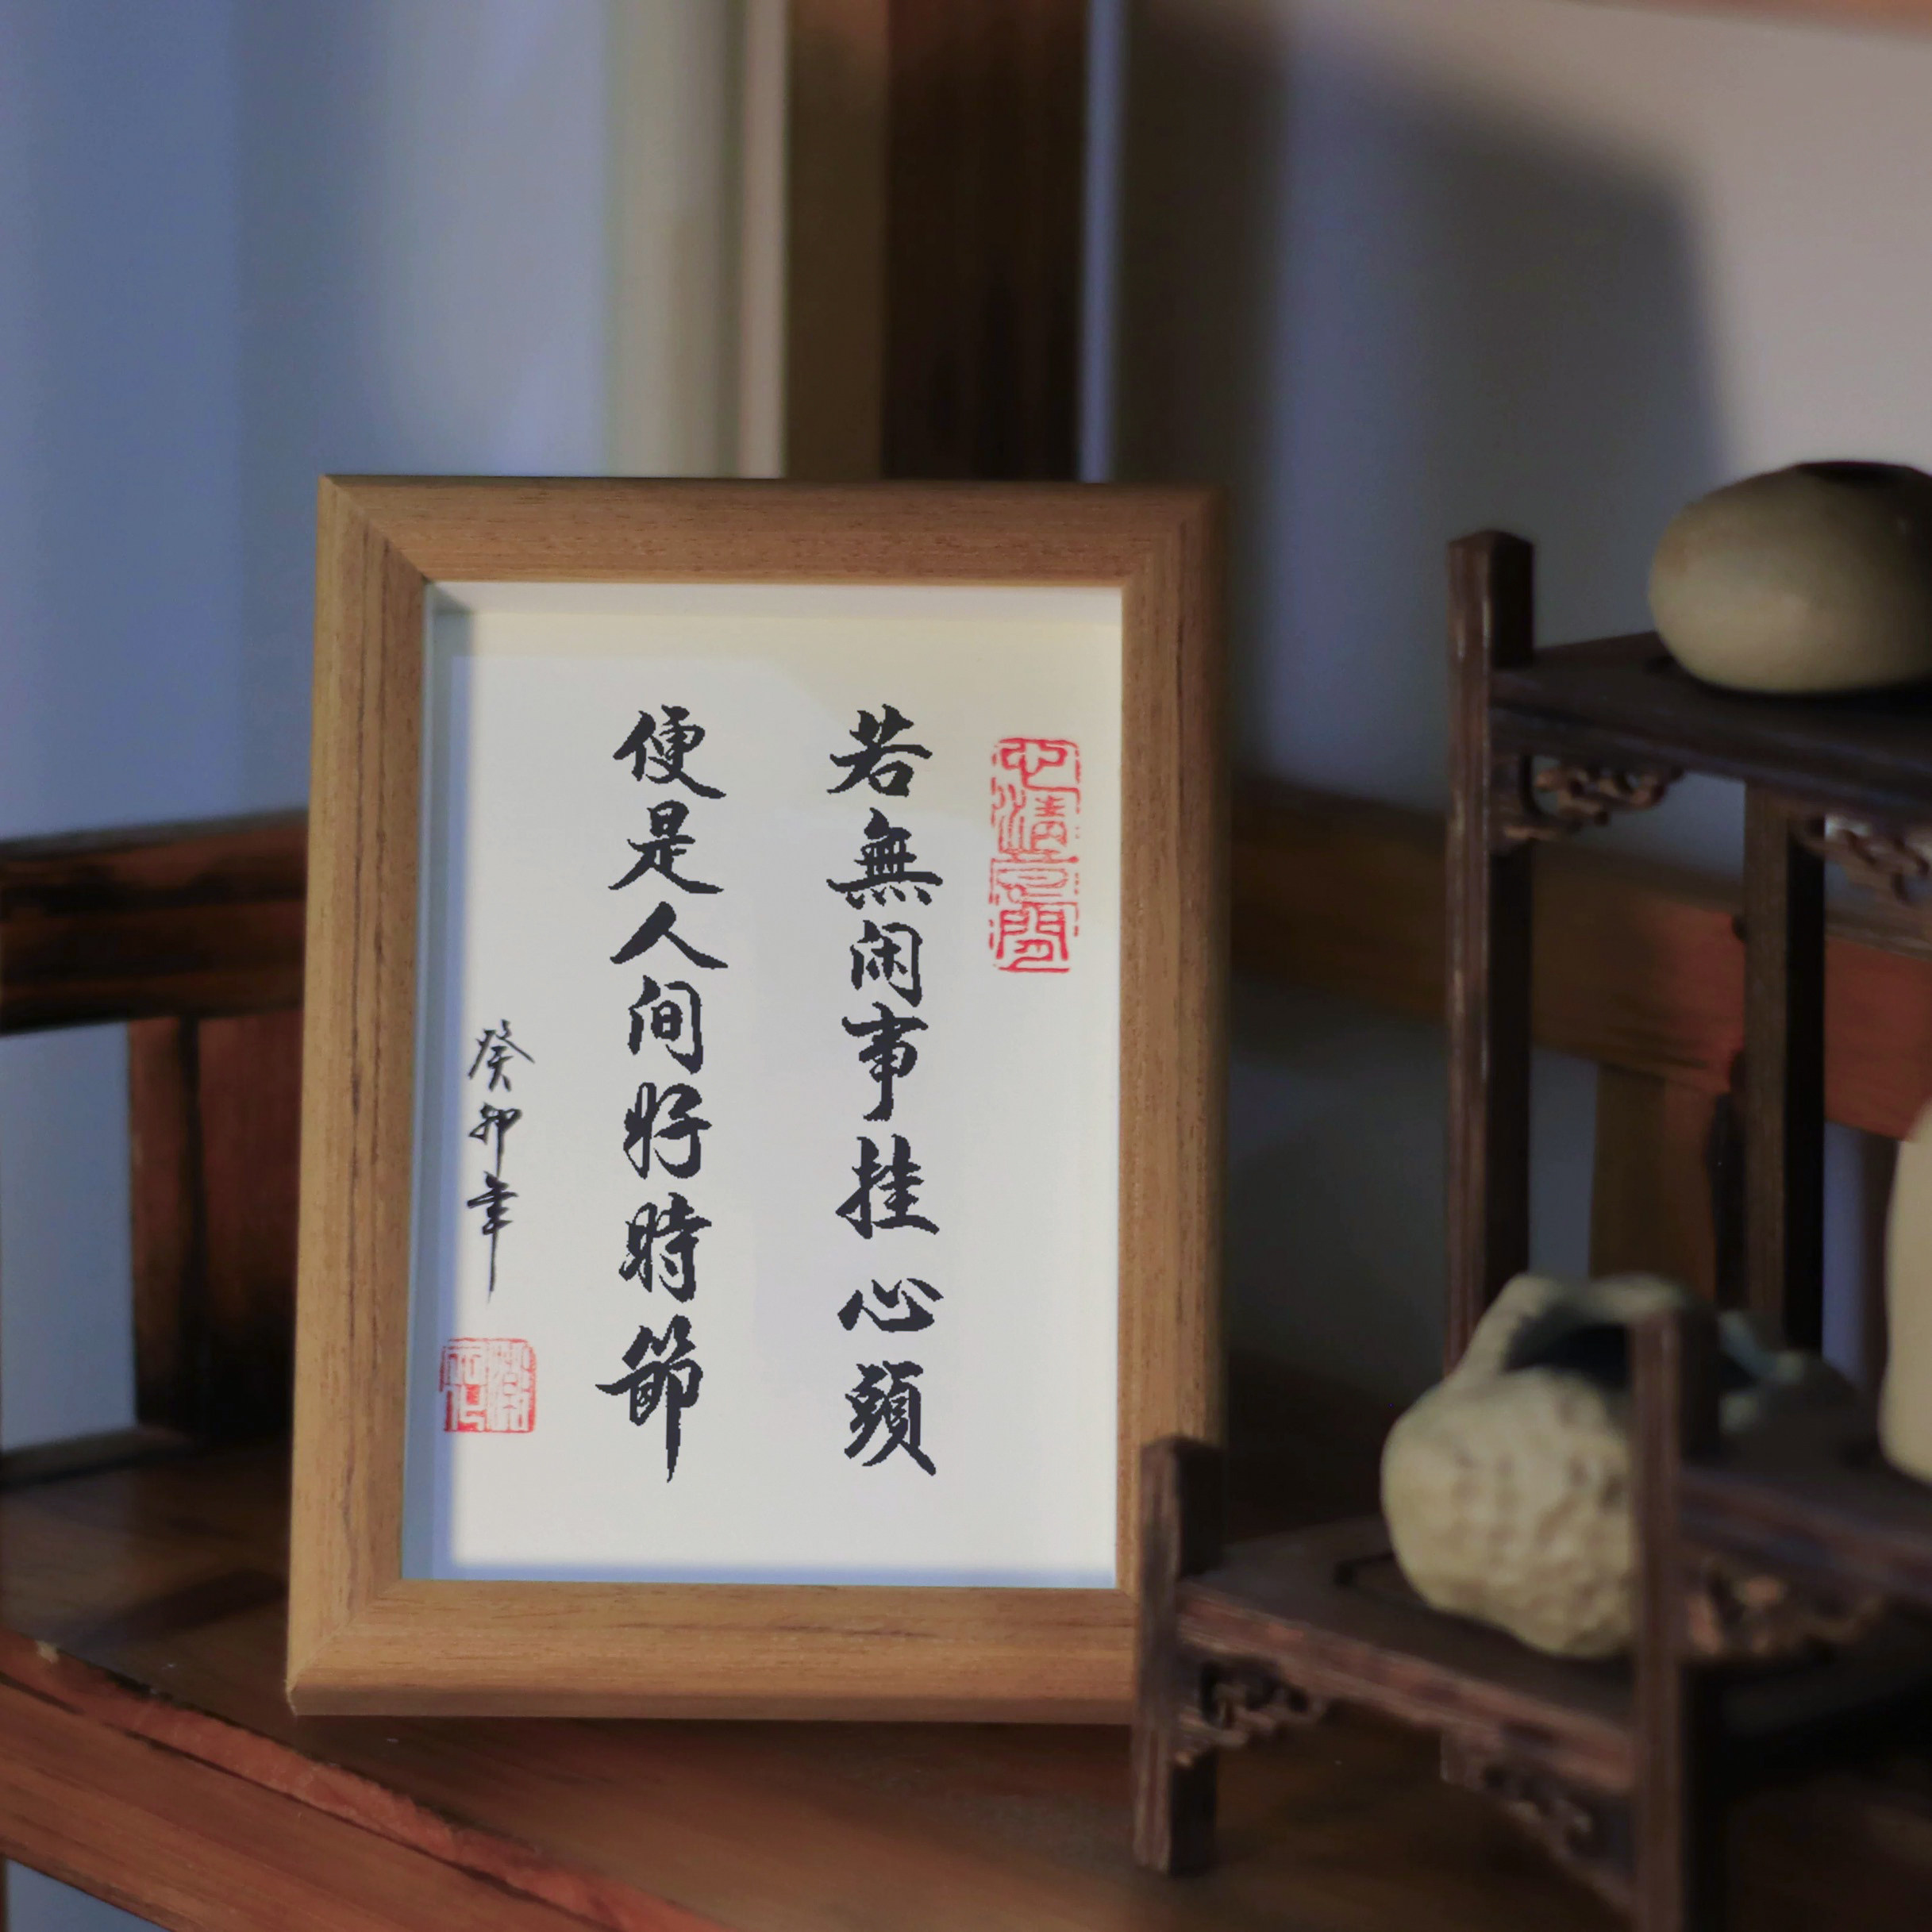 心清茗闻
若無闲事挂心頭
便是人间好時節
癸卯年